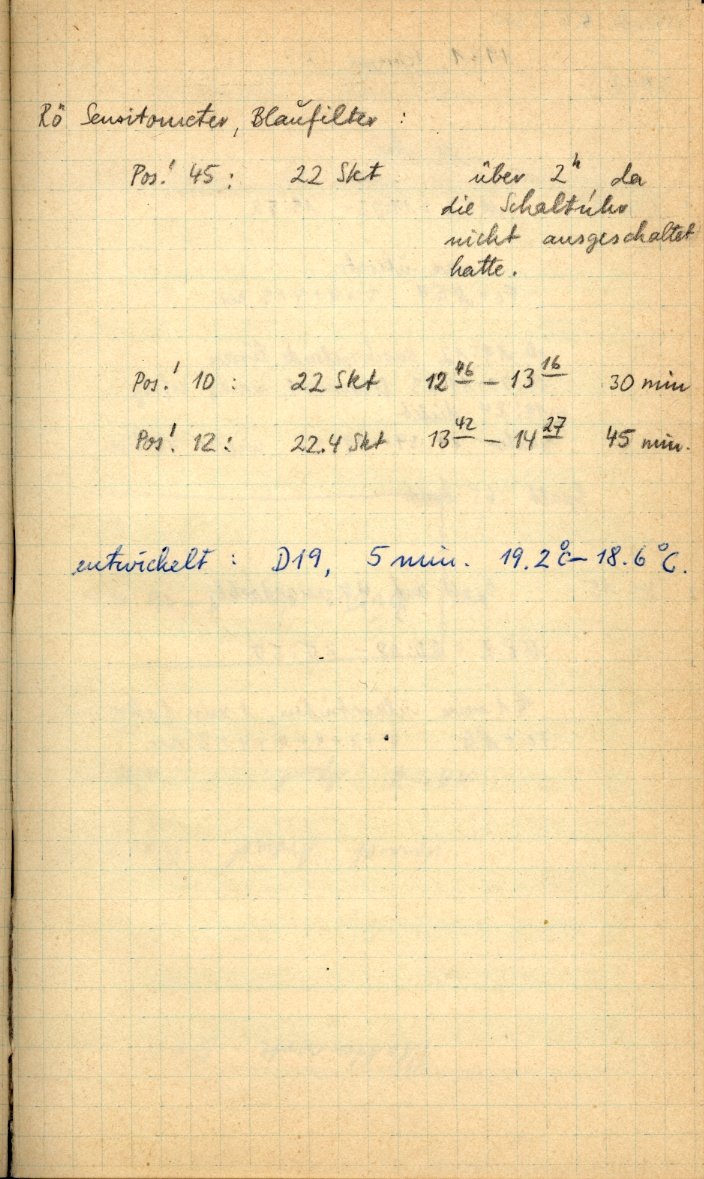 Rö Sensitometer, Blaufilter :
Pos.! 45 : 22 Skt über 2h da
die Schaltuhr
nicht ausgeschaltet
hatte.
Pos.! 10 : 22 Skt 12 46 – 13 16 30 min
Pos.! 12 : 22.4 Skt 13 42 – 14 27 45 min.
entwickelt : D19, 5 min. 19.2°C – 18.6°C.